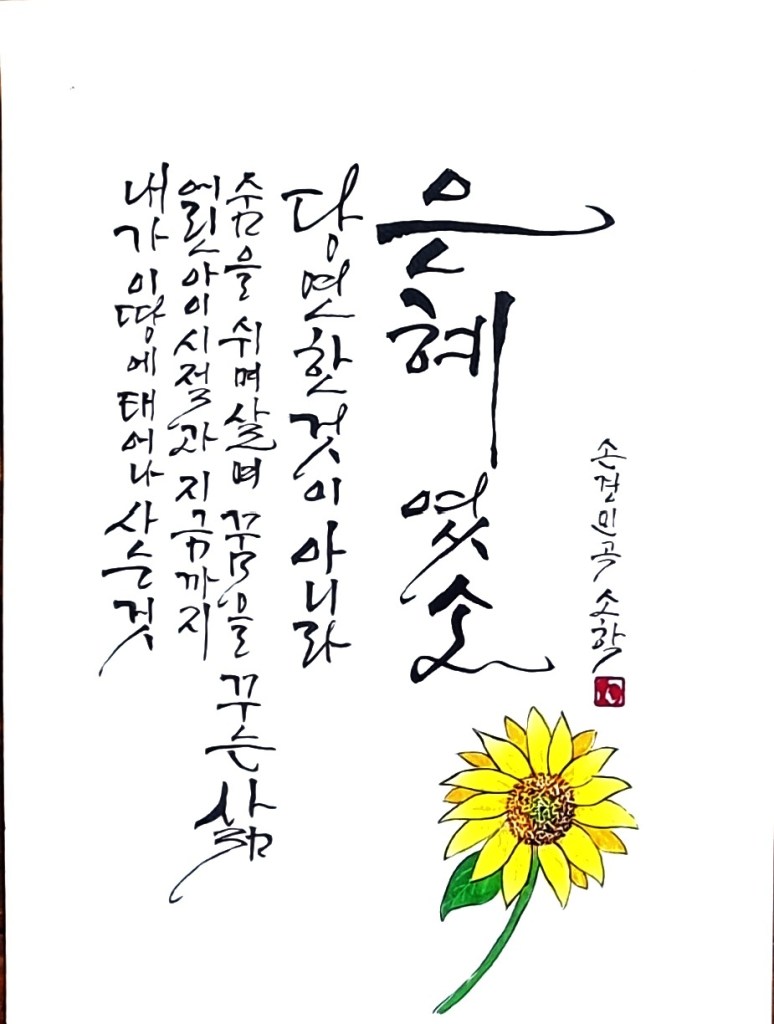 내가 이땅에 태어나 사는것
어린아이시절과 지금까지
숨을 쉬며살며 꿈을 꾸는 삶
당연한것이 아니라
은혜였소
손경민곡 소학